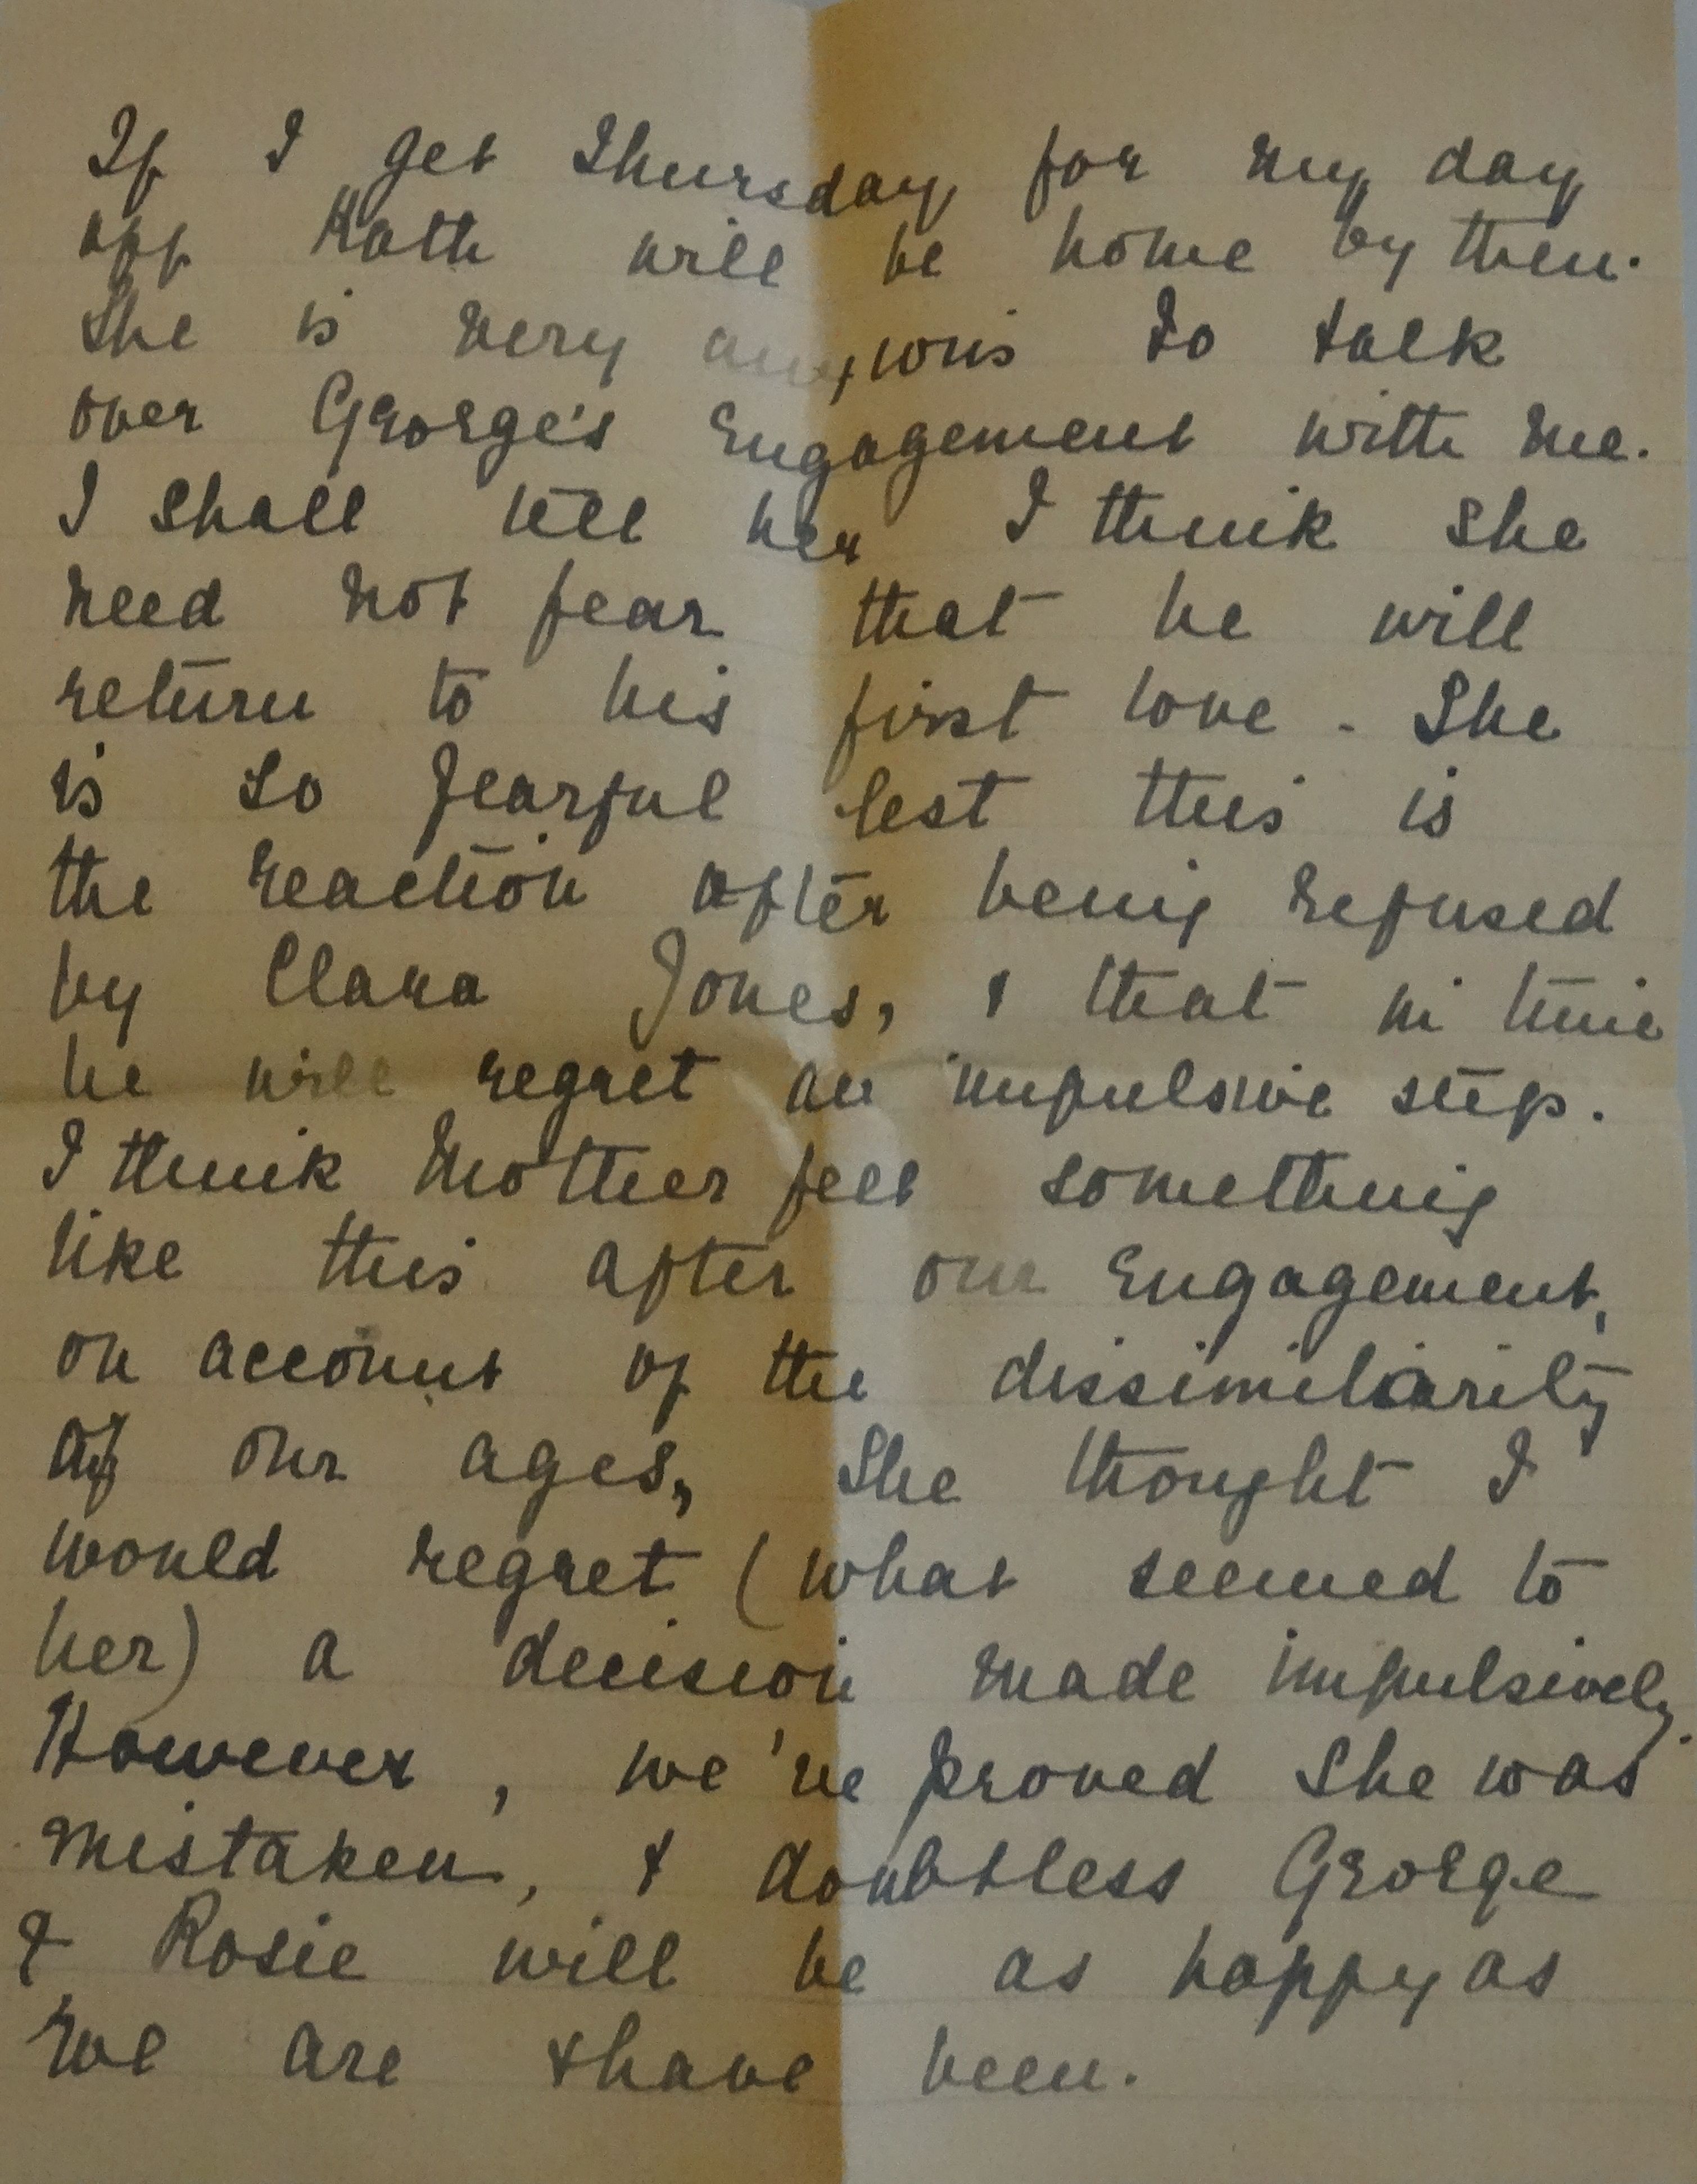 If I get Thursday for my day
off Kath will be home by then.
She is very anxious to talk
over George's Engagement with me.
I shall tell her I think she
need not fear that he will
return to his first love - She
is so fearful lest this is
the reaction after being refused
by Clara Jones, & that in time
he will regret an impulsive step.
I think Mother felt something
like this after our Engagement,
on account of the dissimilarity
of our ages, She thought I
would regret (what seemed to
her) a decision made impulsively.
However, we've proved she was
mistaken, & doubtless George
& Rosie will be as happy as
we are & have been.